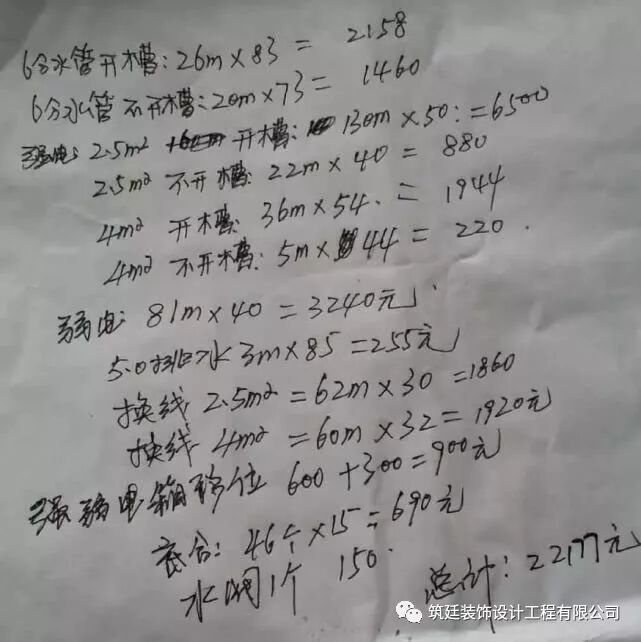 6分水管开槽:26m×83= 2158
6分水管不开槽:20m×73= 1460
强电:2.5m² 开槽:130m×50:=6500
2.5m² 不开槽:22m×40=880
4m² 开槽:36m×54.=1944
4m² 不开槽:5m×44=220.
弱电:81m×40=3240元
50排水3m×85=255元
换线 2.5m²=62m×30=1860
换线 4m²=60m×32=1920元
强弱电箱移位 600+300=900元
底合:46个×15=690元
水阀1个 150.
总计:22177元
筑廷装饰设计工程有限公司